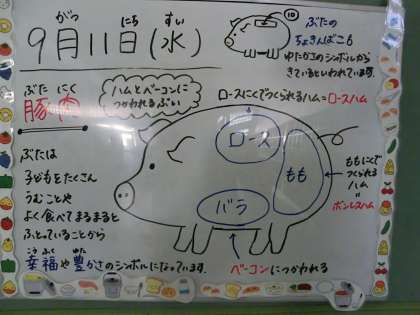 がつ にち すい
9月11日(水)
10
ぶたの
ちょきんばこも
ゆたかさのシンボルから
きているといわれています。
ぶた にく
豚肉
ハムとベーコンに
つかわれるぶい
ロースにくでつくられるハム=ロースハム
ロース
もも
バラ
ももにくで
つくられる
ハム
=
ボンレスハム
ぶたは
子どもをたくさん
うむことや
よく食べてまるまると
ふとっていることから
こうふく ゆた
幸福や豊かさのシンボルになっています。
ベーコンにつかわれる